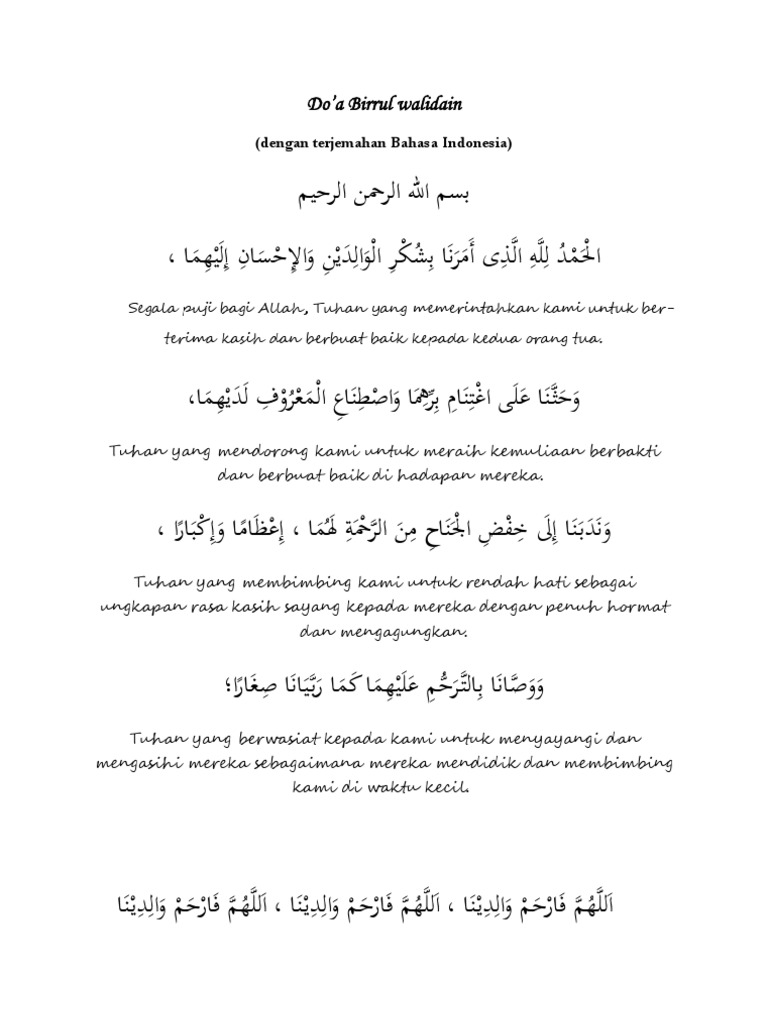 Do'a Birrul walidain
(dengan terjemahan Bahasa Indonesia)
بسم الله الرحمن الرحيم
الْحَمْدُ لِلَّهِ الَّذِى أَمَرَنَا بِشُكْرِ الْوَالِدَيْنِ وَالإِحْسَانِ إِلَيْهِمَا ،
Segala puji bagi Allah, Tuhan yang memerintahkan kami untuk ber-
terima kasih dan berbuat baik kepada kedua orang tua.
وَحَثَّنَا عَلَى اغْتِنَامِ بِرِّهِمَا وَاصْطِنَاعِ الْمَعْرُوْفِ لَدَيْهِمَا،
Tuhan yang mendorong kami untuk meraih kemuliaan berbakti
dan berbuat baik di hadapan mereka.
وَنَدَبَنَا إِلَى خِفْضِ الْجَنَاحِ مِنَ الرَّحْمَةِ لَهُمَا ، إِعْظَامًا وَإِكْبَارًا ،
Tuhan yang membimbing kami untuk rendah hati sebagai
ungkapan rasa kasih sayang kepada mereka dengan penuh hormat
dan mengagungkan.
وَوَصَّانَا بِالتَّرَحُّمِ عَلَيْهِمَا كَمَا رَبَّيَانَا صِغَارًا؛
Tuhan yang berwasiat kepada kami untuk menyayangi dan
mengasihi mereka sebagaimana mereka mendidik dan membimbing
kami di waktu kecil.
اَللَّهُمَّ فَارْحَمْ وَالِدِيْنَا ، اَللَّهُمَّ فَارْحَمْ وَالِدِيْنَا ، اَللَّهُمَّ فَارْحَمْ وَالِدِيْنَا